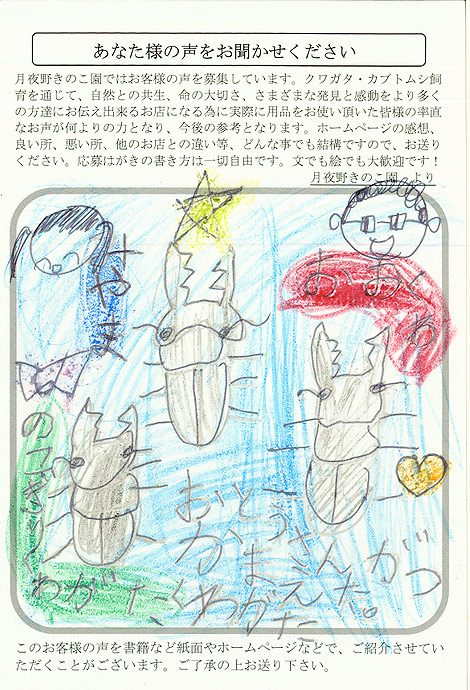 あなた様の声をお聞かせください
月夜野きのこ園ではお客様の声を募集しています。クワガタ・カブトムシ飼
育を通じて、自然との共生、命の大切さ、さまざまな発見と感動をより多く
の方達にお伝え出来るお店になる為に実際に用品をお使い頂いた皆様の率直
なお声が何よりの力となり、今後の参考となります。ホームページの感想、
良い所、悪い所、他のお店との違い等、どんな事でも結構ですので、お送り
ください。応募はがきの書き方は一切自由です。文でも絵でも大歓迎です！
月夜野きのこ園 より
おおくわ
やま
のこぎり
くわがた
おとうさんがつ
かまえた。
くわがた
このお客様の声を書籍など紙面やホームページなどで、ご紹介させてい
ただくことがございます。ご了承の上お送り下さい。